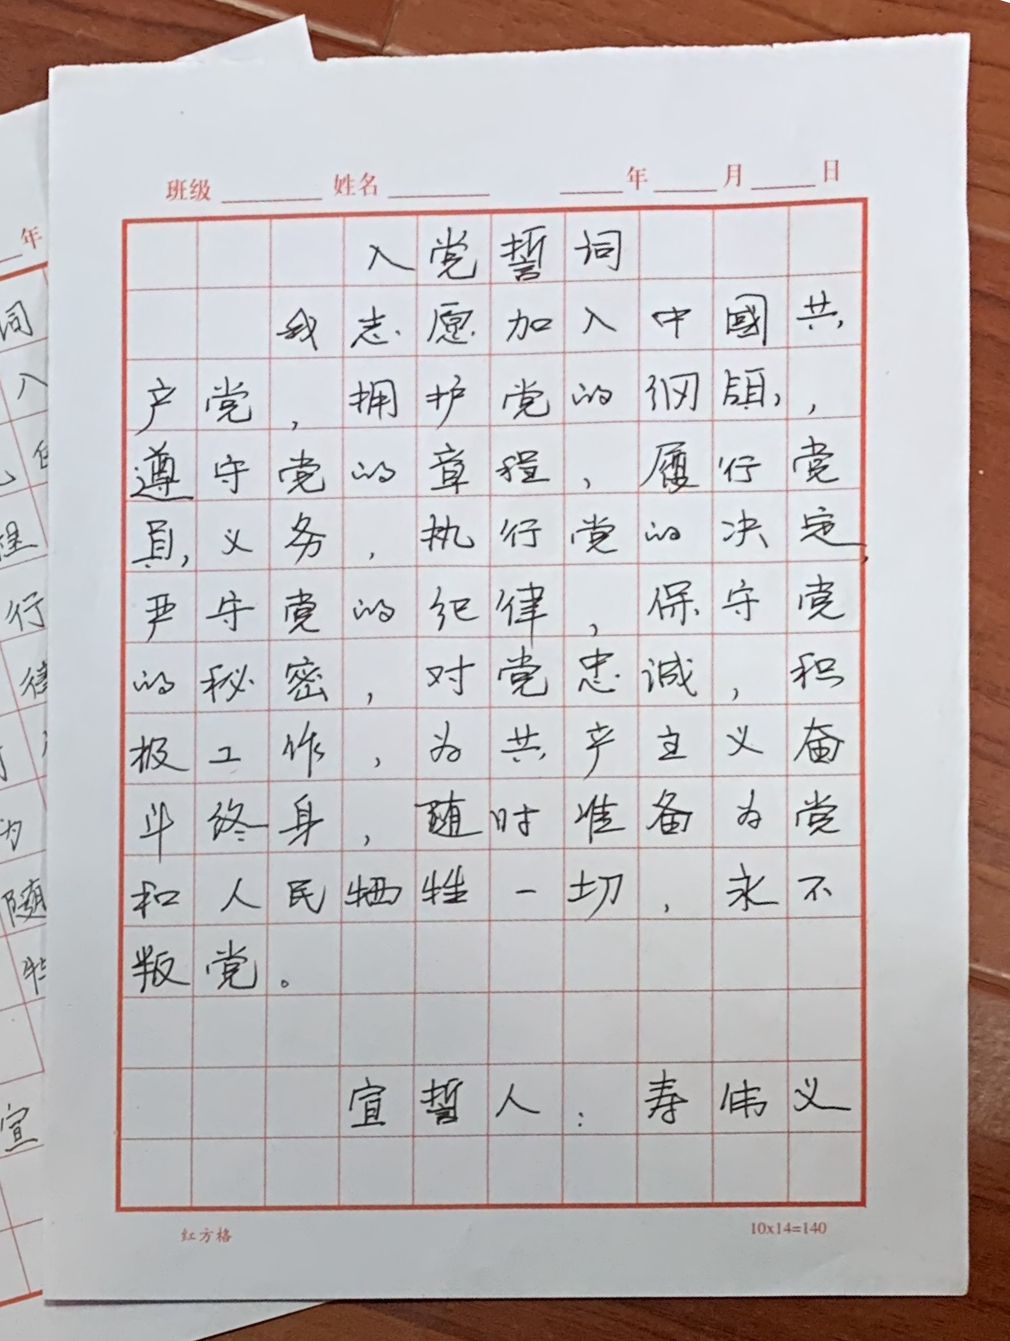 班级 姓名 年 月 日
入党誓词
我志愿加入中國共
产党,拥护党的纲领,
遵守党的章程,履行党
员义务,执行党的决定,
严守党的纪律,保守党
的秘密,对党忠诚,积
极工作,为共产主义奋
斗终身,随时准备为党
和人民牺牲一切,永不
叛党。
宣誓人:寿伟义
红方格 10x14=140
年
词
入
程
行
律
为
随
牲
宣